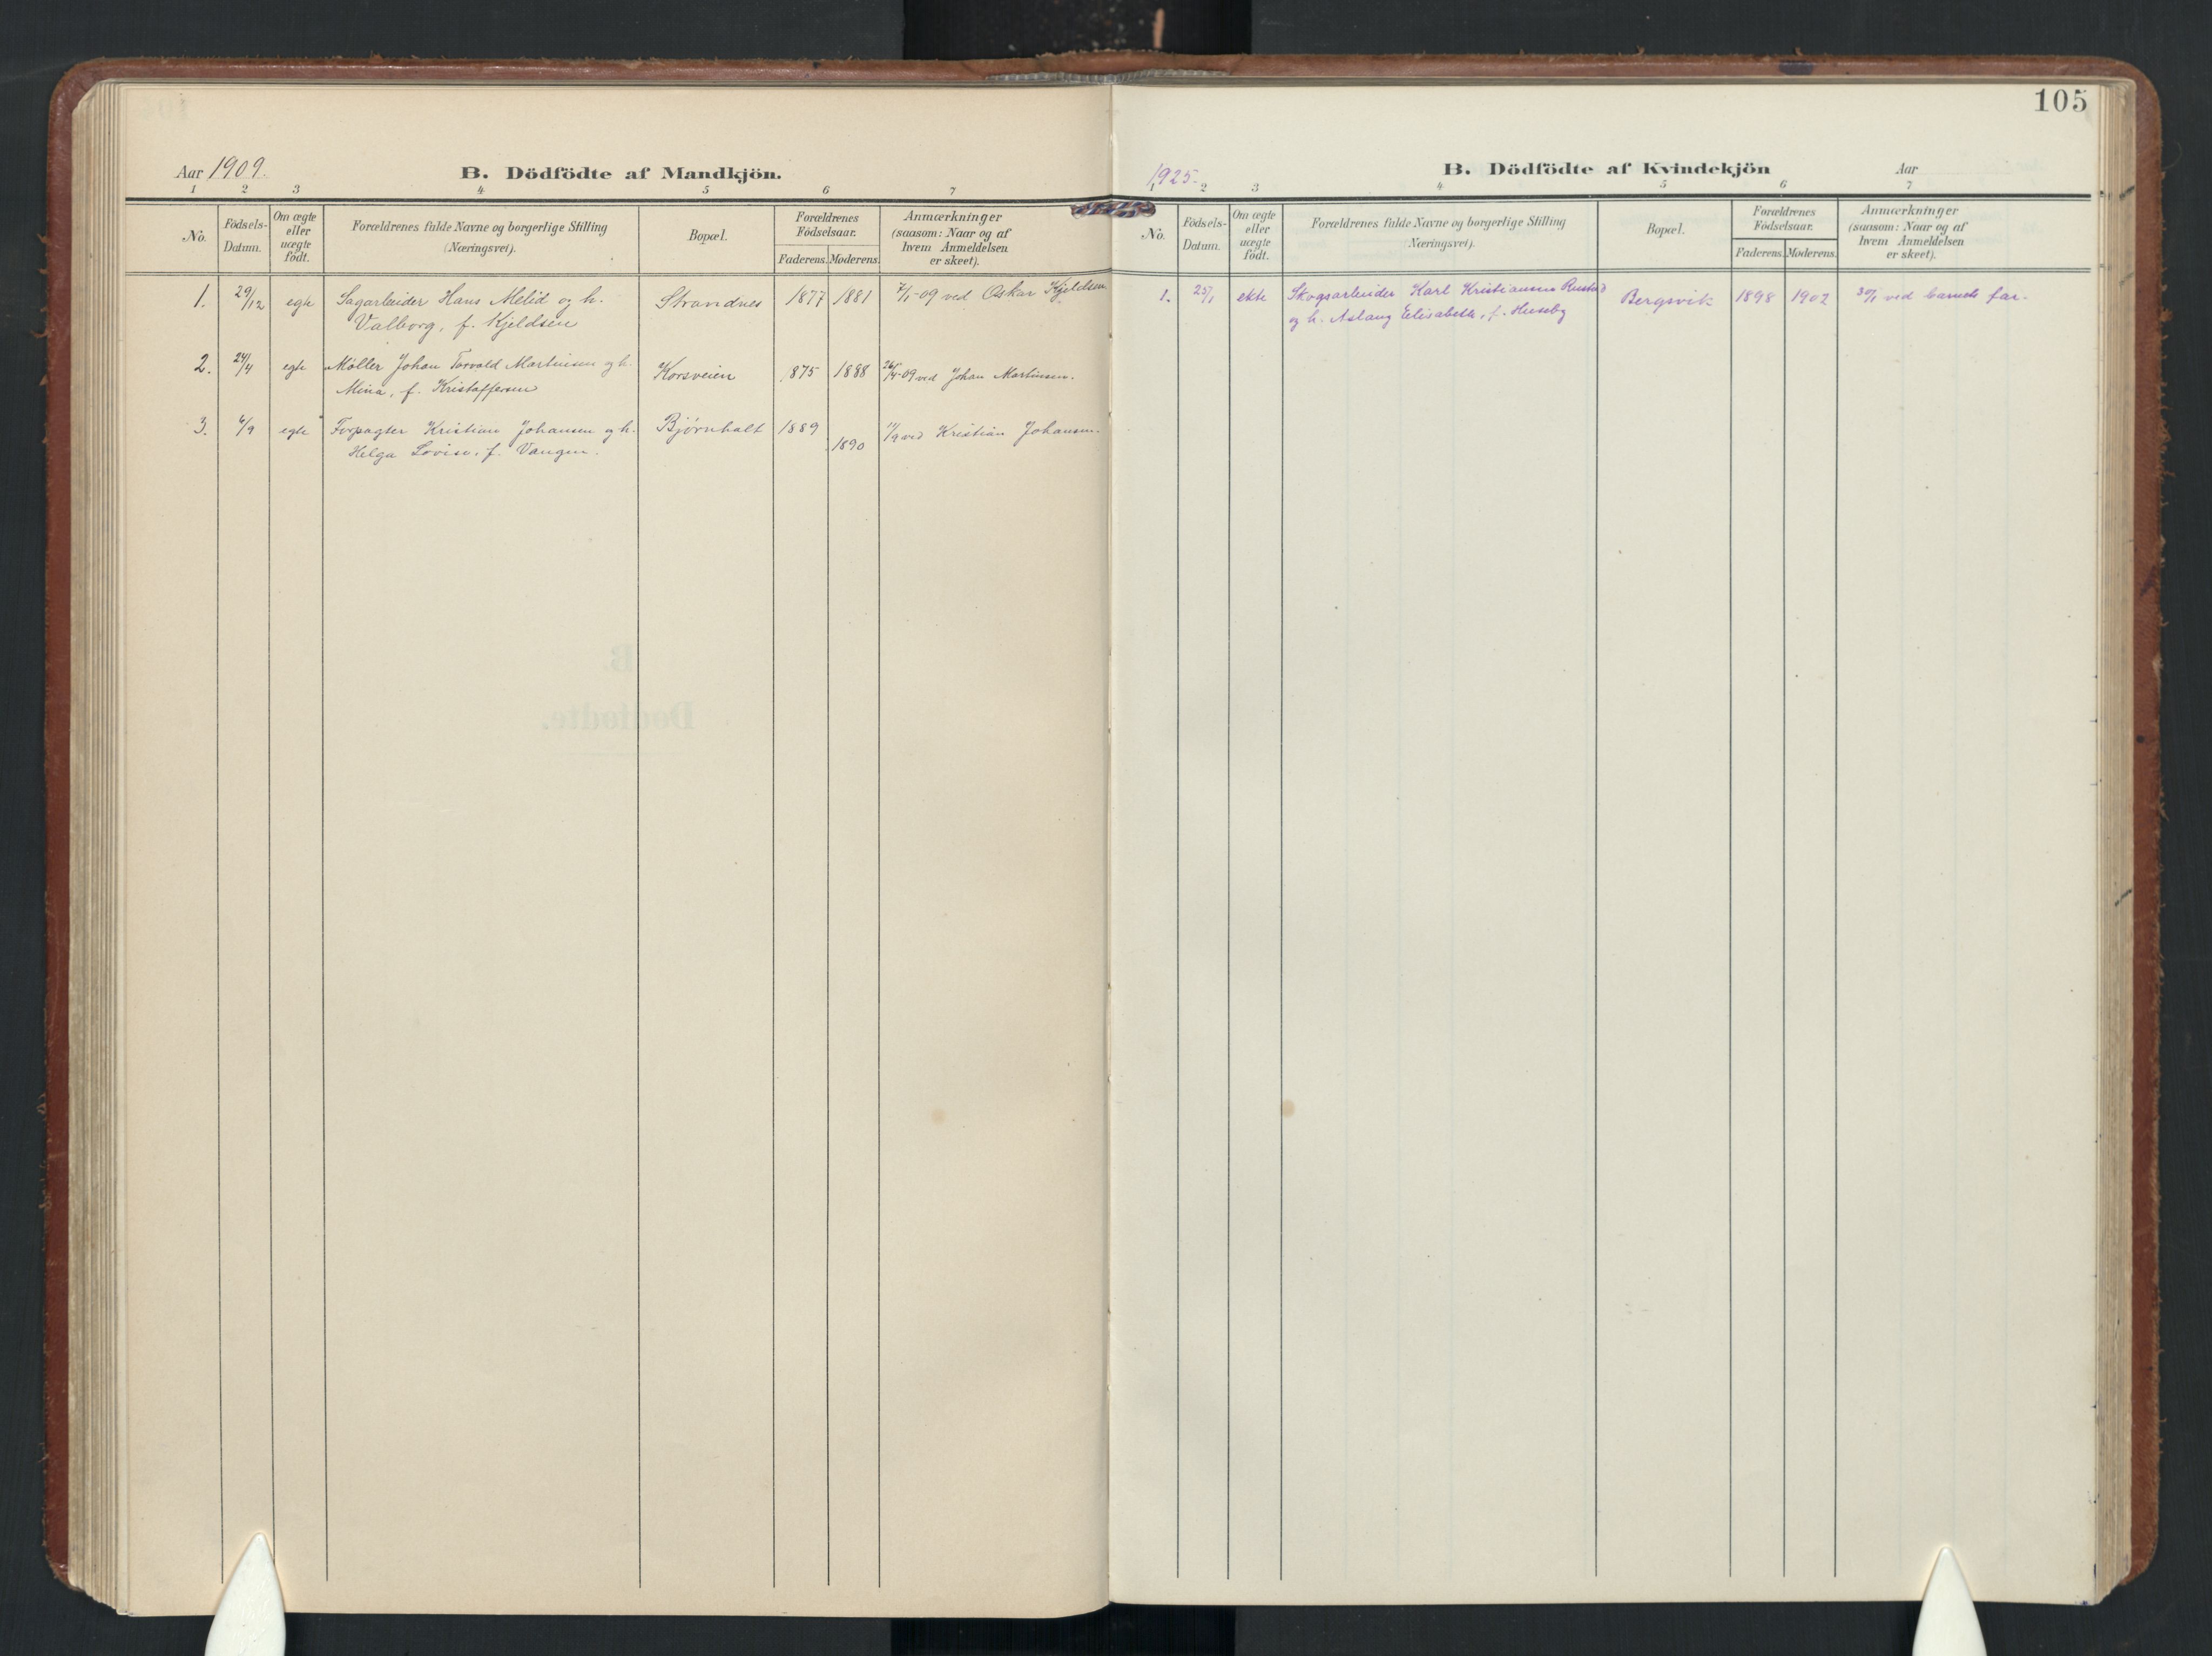 105
Aar 1909.
B. Dödfödte af Mandkjön.
1 2 3 4 5 6 7
No.
Födsels-Datum.
Om ægte eller uægte födt.
Forældrenes fulde Navne og borgerlige Stilling
(Næringsvei).
Bopæl.
Forældrenes Födselsaar.
Faderens. Moderens.
Anmærkninger
(saasom: Naar og af
hvem Anmeldelsen
er skeet).
1. 29/12 egte Sagarbeider Hans Melid og h. Strandnes 1877 1881 7/1-09 ved Oskar Kjeldsen
Valborg, f. Kjeldsen
2. 24/4 egte Møller Johan Torvald Martinsen og h. Korsveien 1875 1888 26/4-09 ved Johan Martinsen.
Mina, f. Kristoffersen
3. 4/9 egte Forpagter Kristian Johansen og h. Bjørnholt 1889 11/9 ved Kristian Johansen.
Helga Lovise, f. Vangen. 1890
1925.
B. Dödfödte af Kvindekjön
Aar
1 2 3 4 5 6 7
No.
Födsels-Datum.
Om ægte eller uægte födt.
Forældrenes fulde Navne og borgerlige Stilling
Næringsvei).
Bopæl.
Forældrenes Födselsaar.
Faderens. Moderens.
Anmærkninger
(saasom: Naar og af
hvem Anmeldelsen
er skeet).
1. 25/1 ekte Skogsarbeider Karl Kristiansen Rustad Bergsvik 1898 1902 30/1 ved barnets far.
og h. Aslaug Elisabeth, f. Huseby